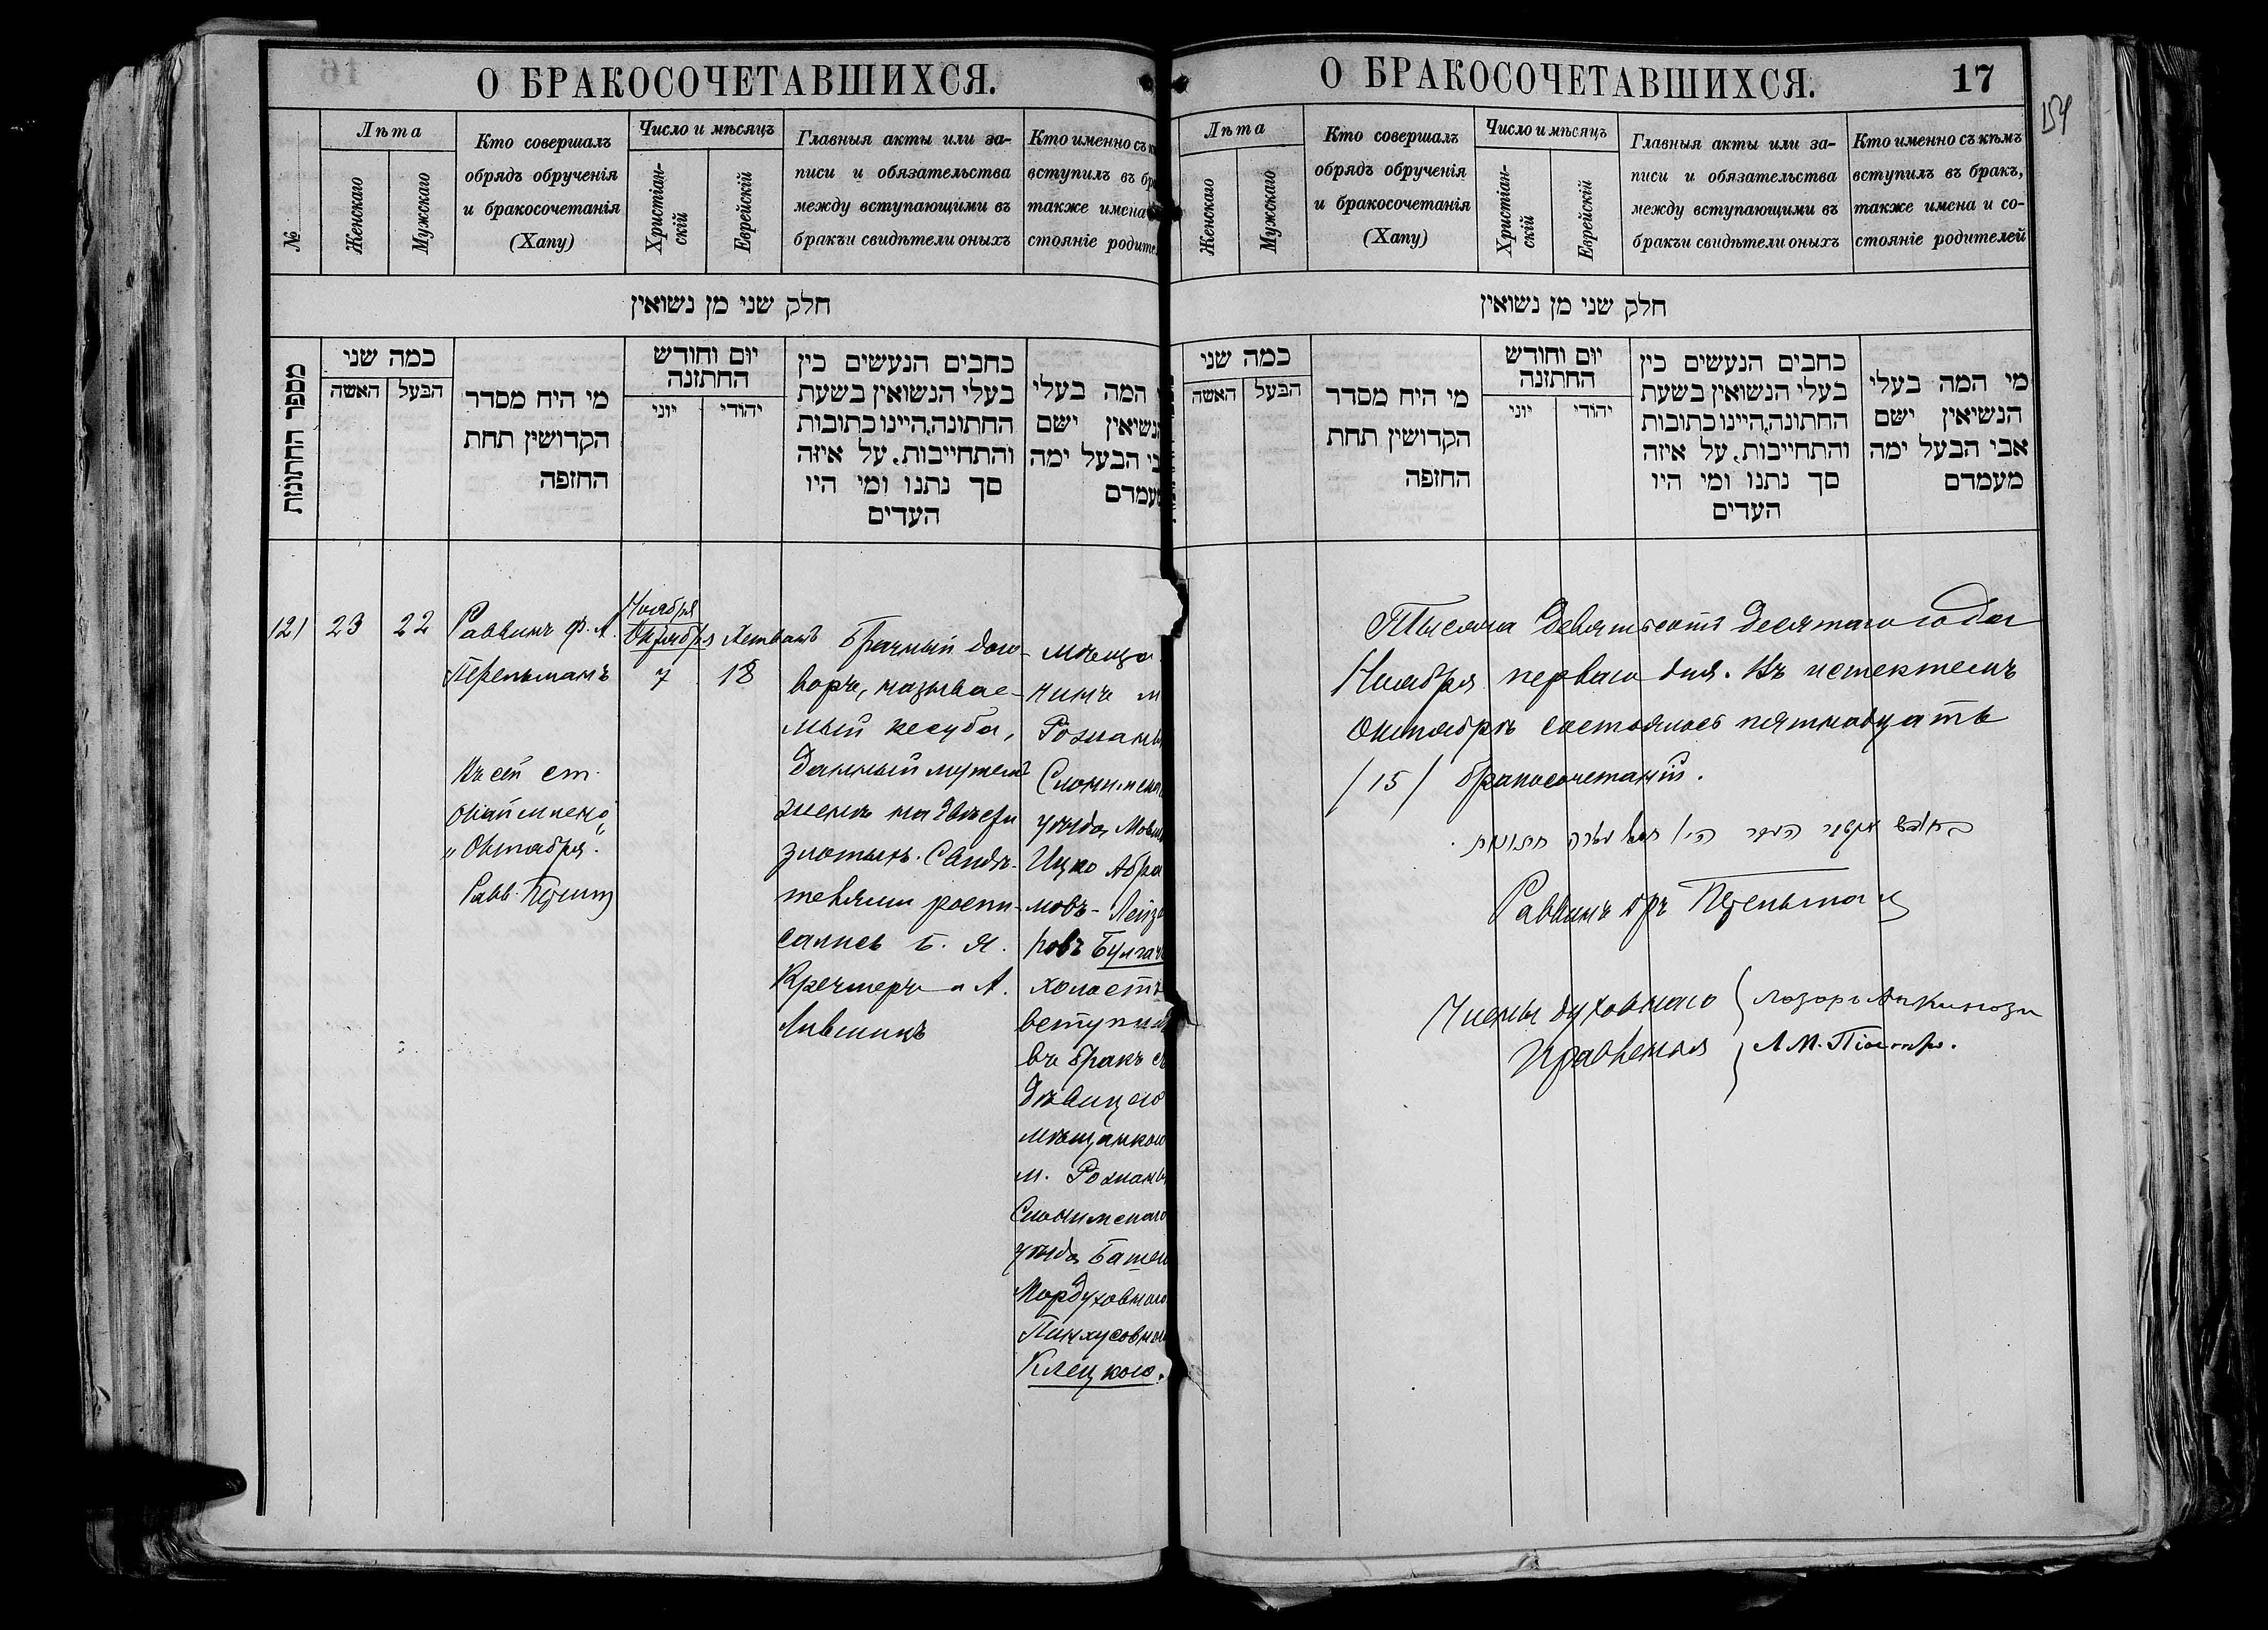 16
О БРАКОСОЧЕТАВШИХСЯ.
№
Лѣта
Женскаго
Мужскаго
Кто совершалъ
обрядъ обрученія
и бракосочетанія
(Хапу)
Число и мѣсяцъ
Христіан-
скій
Еврейскій
Главныя акты или за-
писи и обязательства
между вступающими въ
бракъ и свидѣтели оныхъ
Кто именно съ
вступилъ въ
также имена
стояніе
חלק שני מן נשואין
מספר החתונות
כמה שני
האשה
הבעל
מי היח מסדר
הקדושין תחת
החופה
יום וחודש
החתונה
יוני
יהודי
כחבים הנעשים בין
בעלי הנשואין בשעת
החתונה, היינו כתובות
והתחייבות, על איזה
סך נתנו ומי היו
העדים
המה בעלי
ישם
הבעל ימה
121
23
22
Раввинъ
Перельманъ
Въ сей ст.
"Октября".
Равв.
Ноября
Октября
7
Хешванъ
18
Брачный дого-
воръ, называе-
мый кесуба,
данный мужемъ
женѣ на двѣсти
злотыхъ. Свидѣ-
телями роспи-
сались Б. Я.
Кречмеръ и А.
Лившицъ
мѣща-
нинъ м.
Рожаны
уѣзда
Ицко Абра
мовъ-
ровъ
холостъ
вступилъ
въ бракъ съ
дѣвицею
мѣщанкою
м. Рожаны
Слонимскаго
уѣзда
Мордуховною
Клецкою.
О БРАКОСОЧЕТАВШИХСЯ.
17
Лѣта
Женскаго
Мужскаго
Кто совершалъ
обрядъ обрученія
и бракосочетанія
(Хапу)
Число и мѣсяцъ
Христіан-
скій
Еврейскій
Главныя акты или за-
писи и обязательства
между вступающими въ
бракъ и свидѣтели оныхъ
Кто именно съ кѣмъ
вступилъ въ бракъ,
также имена и со-
стояніе родителей
חלק שני מן נשואין
כמה שני
האשה
הבעל
מי היח מסדר
הקדושין תחת
החופה
יום וחודש
החתונה
יוני
יהודי
כחבים הנעשים בין
בעלי הנשואין בשעת
החתונה, היינו כתובות
והתחייבות, על איזה
סך נתנו ומי היו
העדים
מי המה בעלי
הנשיאין ישם
אבי הבעל ימה
מעמדם
Тысяча девятьсотъ десятаго года
Ноября перваго дня. Въ истекшемъ
Октябрѣ состоялось пятнадцать
/15/ бракосочетаній.
Раввинъ Перельман
Члены духовнаго
Правленія